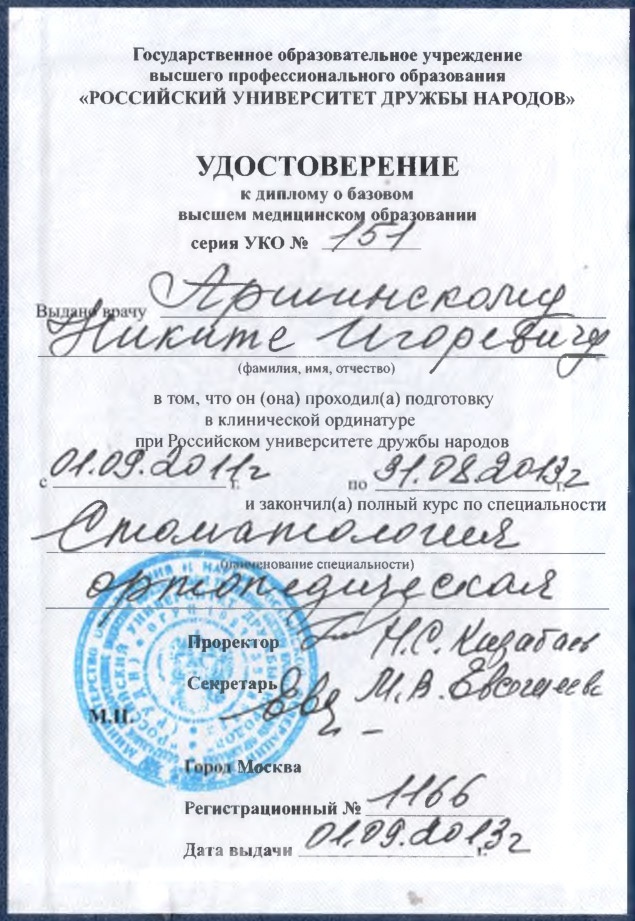 Государственное образовательное учреждение
высшего профессионального образования
«РОССИЙСКИЙ УНИВЕРСИТЕТ ДРУЖБЫ НАРОДОВ»
УДОСТОВЕРЕНИЕ
к диплому о базовом
высшем медицинском образовании
серия УКО № 151
Выдано врачу Аршинскому
Никите Игоревичу
(фамилия, имя, отчество)
в том, что он (она) проходил(а) подготовку
в клинической ординатуре
при Российском университете дружбы народов
с 01.09.2011г г. по 31.08.2013г г.
и закончил(а) полный курс по специальности
Стоматология
(наименование специальности)
ортопедическая
Проректор Н.С. Кирабаев
Секретарь М.В.
М.П.
Город Москва
Регистрационный № 1166
Дата выдачи 01.09.2013г г.